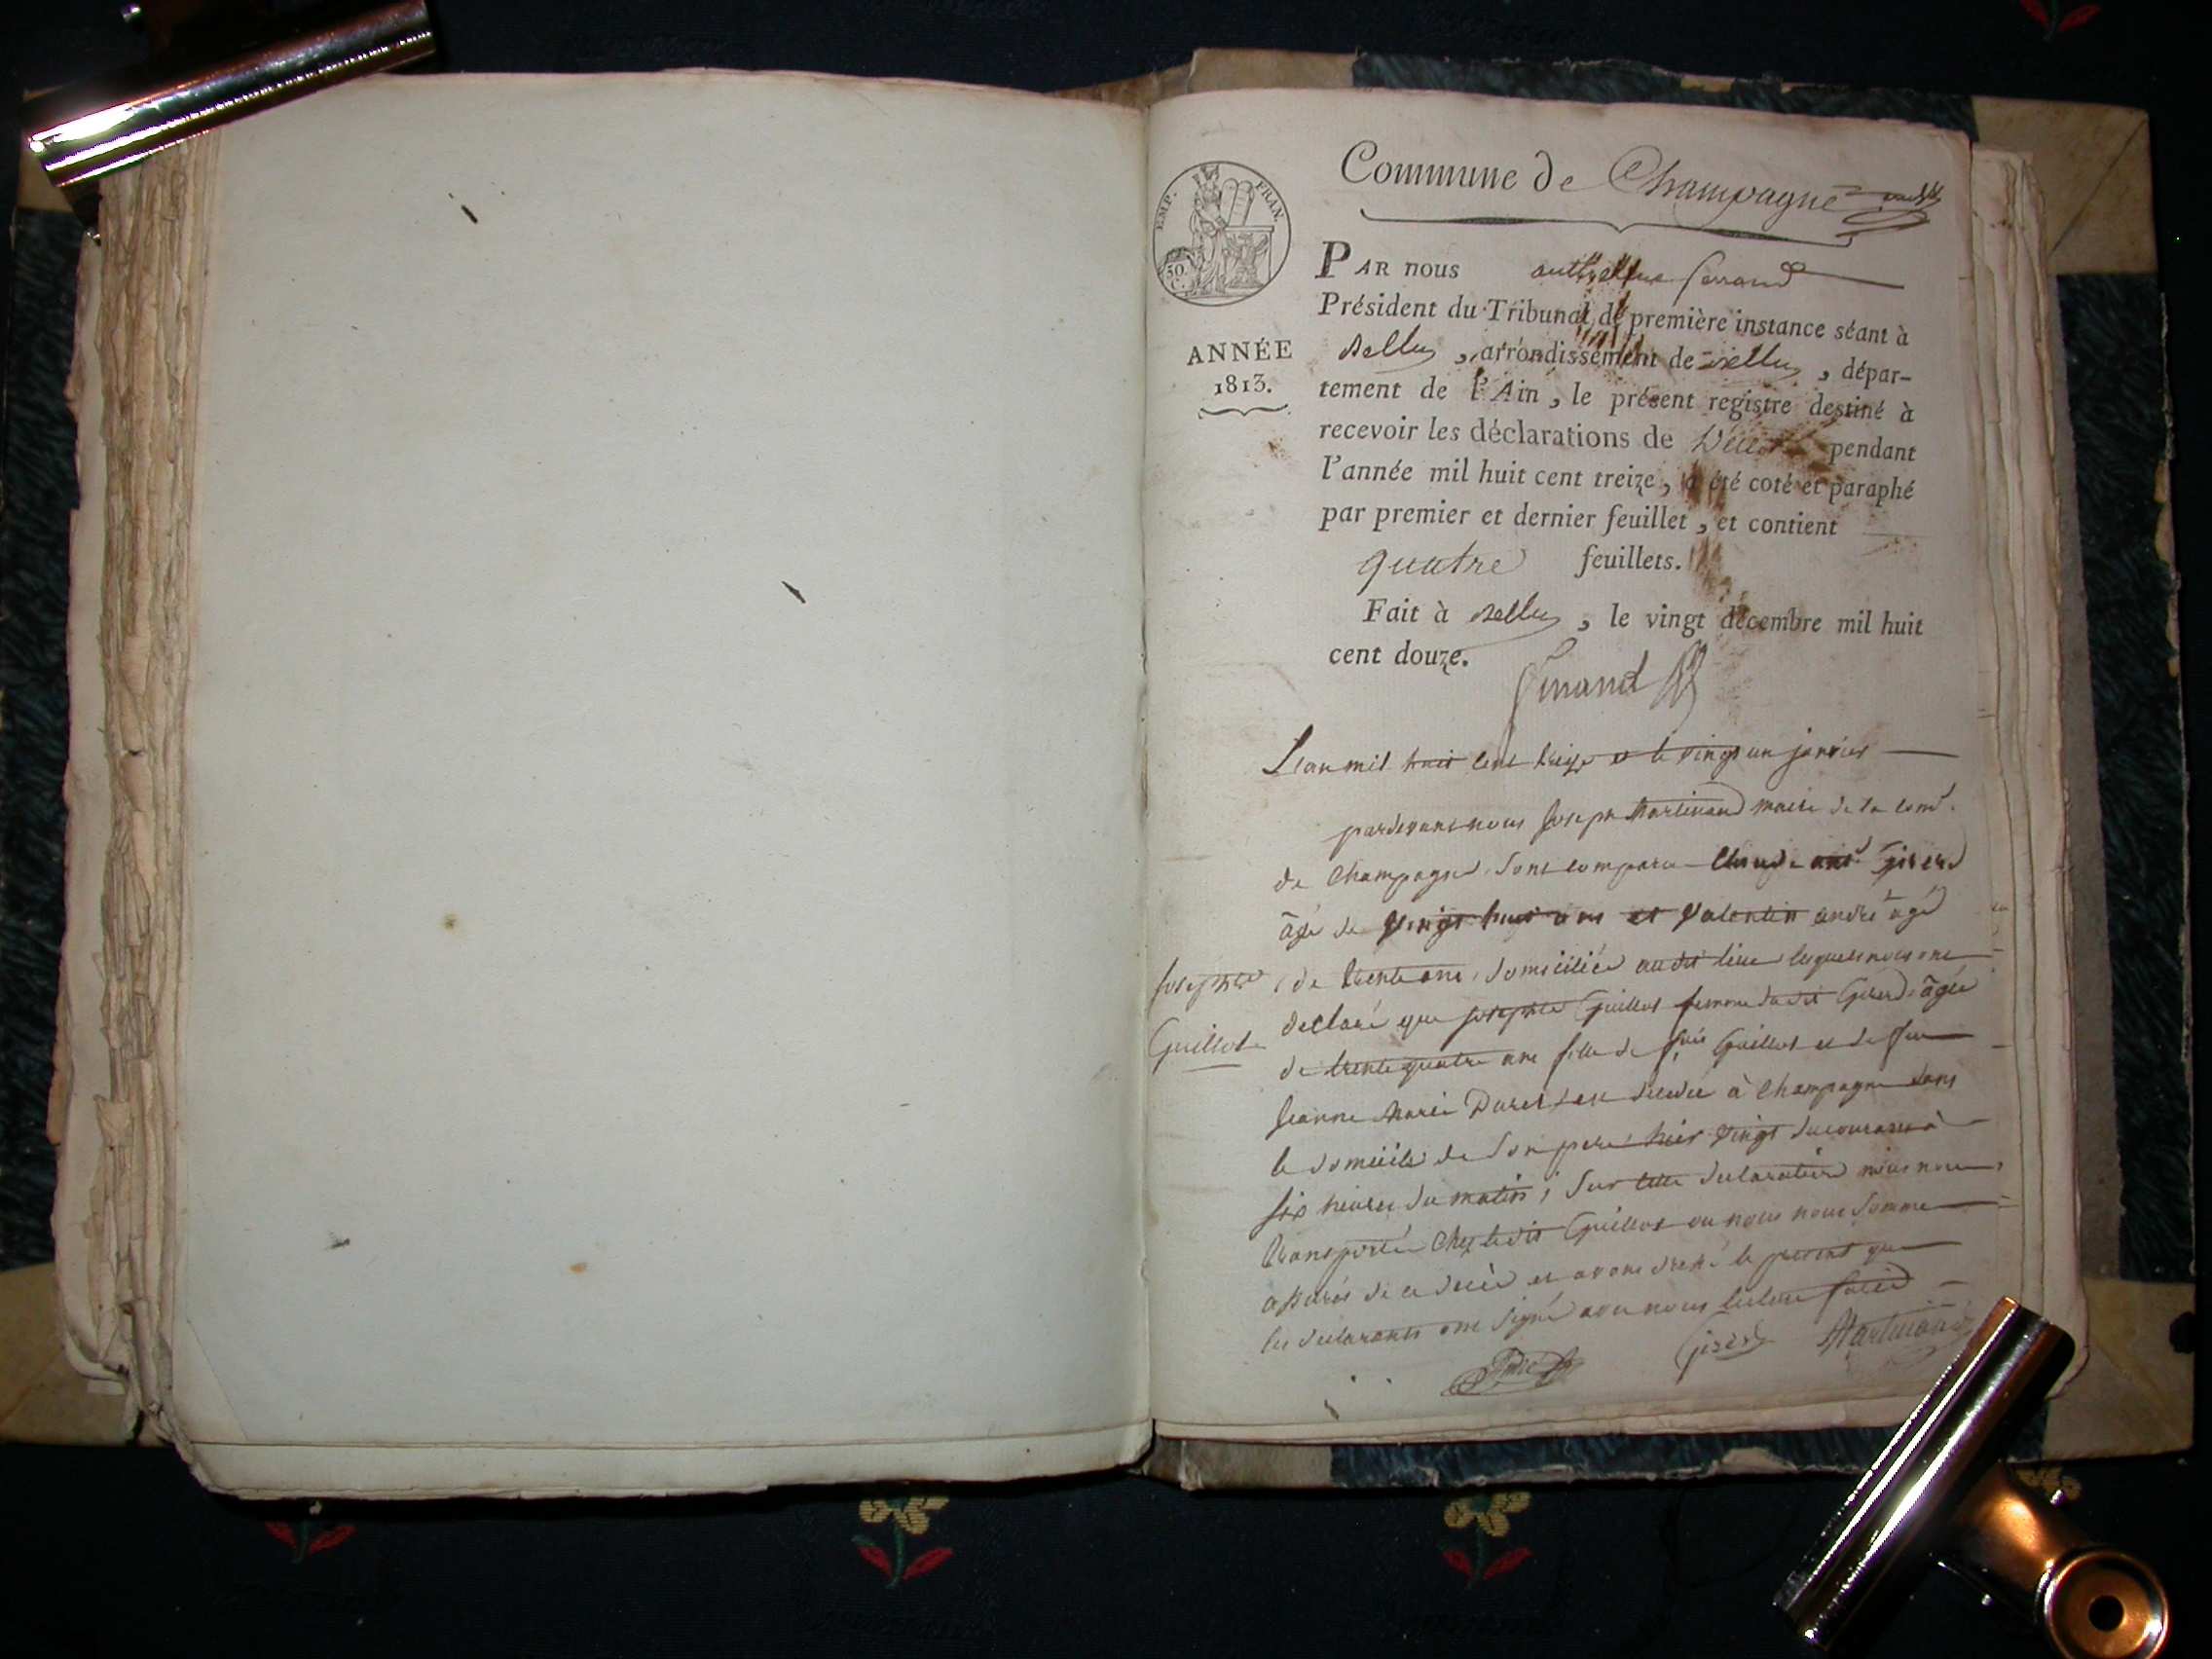 Commune de Champagne
EMP. FRAN.
50.
C.
ANNÉE
1813.
PAR nous anthelme ferrand
Président du Tribunal de première instance séant à
Belley, arrondissement de Belley, dépar-
tement de l'Ain, le présent registre destiné à
recevoir les déclarations de Décès pendant
l'année mil huit cent treize, a été coté et paraphé
par premier et dernier feuillet, et contient
quatre feuillets.
Fait à Belley, le vingt décembre mil huit
cent douze.
ferrand
L'an mil huit cent treize et le vingt un janvier
pardevant nous Joseph Martinand maire de la com.
de Champagne sont comparu Claude ant. girerd
âgé de vingt huit ans et Valentin andré agé
de trente ans, domiciliés audit lieu lesquels nous ont
declaré que josephte Guillot femme dudit Girerd âgée
de trente quatre ans fille de Guillot et de feu
Jeanne Marie est decedée à Champagne dans
le domicile de son pere hier vingt du courant à
six heures du matin; sur cette declaration nous nous
transporté chez ledit Guillot ou nous nous somme
assurés de ce decès et avons dressé le present que
les declarants ont signé avec nous lecture faite
josephte
Guillot
André Girerd Martinand